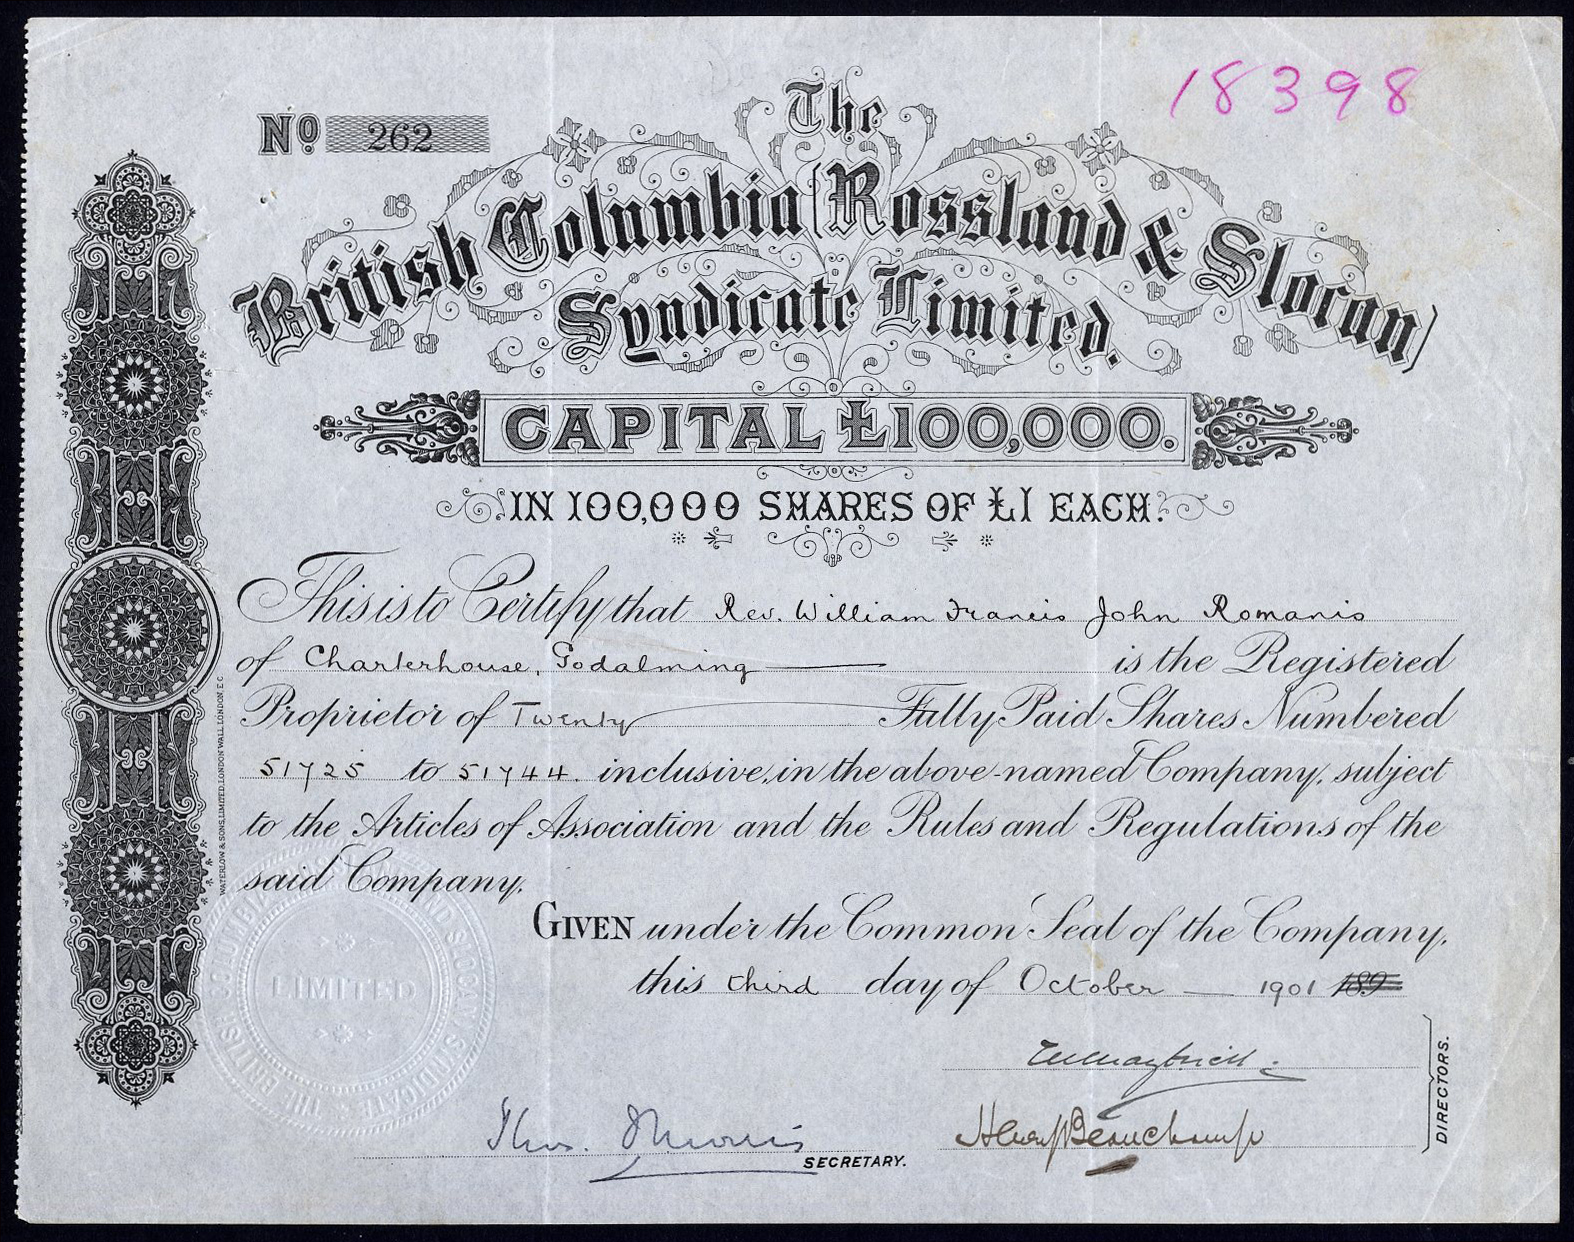 18398
No. 262
The
British Columbia (Rossland & Slocan)
Syndicate Limited.
CAPITAL £100,000.
IN 100,000 SHARES OF £1 EACH.
This is to Certify that Rev. William Francis John Romanis
of Charterhouse, Godalming is the Registered
Proprietor of Twenty Fully Paid Shares Numbered
51725 to 51744. inclusive, in the above-named Company, subject
to the Articles of Association and the Rules and Regulations of the
said Company.
GIVEN under the Common Seal of the Company,
this third day of October 1901 189
Henry Beauchamp
DIRECTORS.
Thos.
SECRETARY.
WATERLOW & SONS, LIMITED, LONDON WALL, LONDON, E.C
THE BRITISH COLUMBIA ROSSLAND AND SLOCAN SYNDICATE
LIMITED